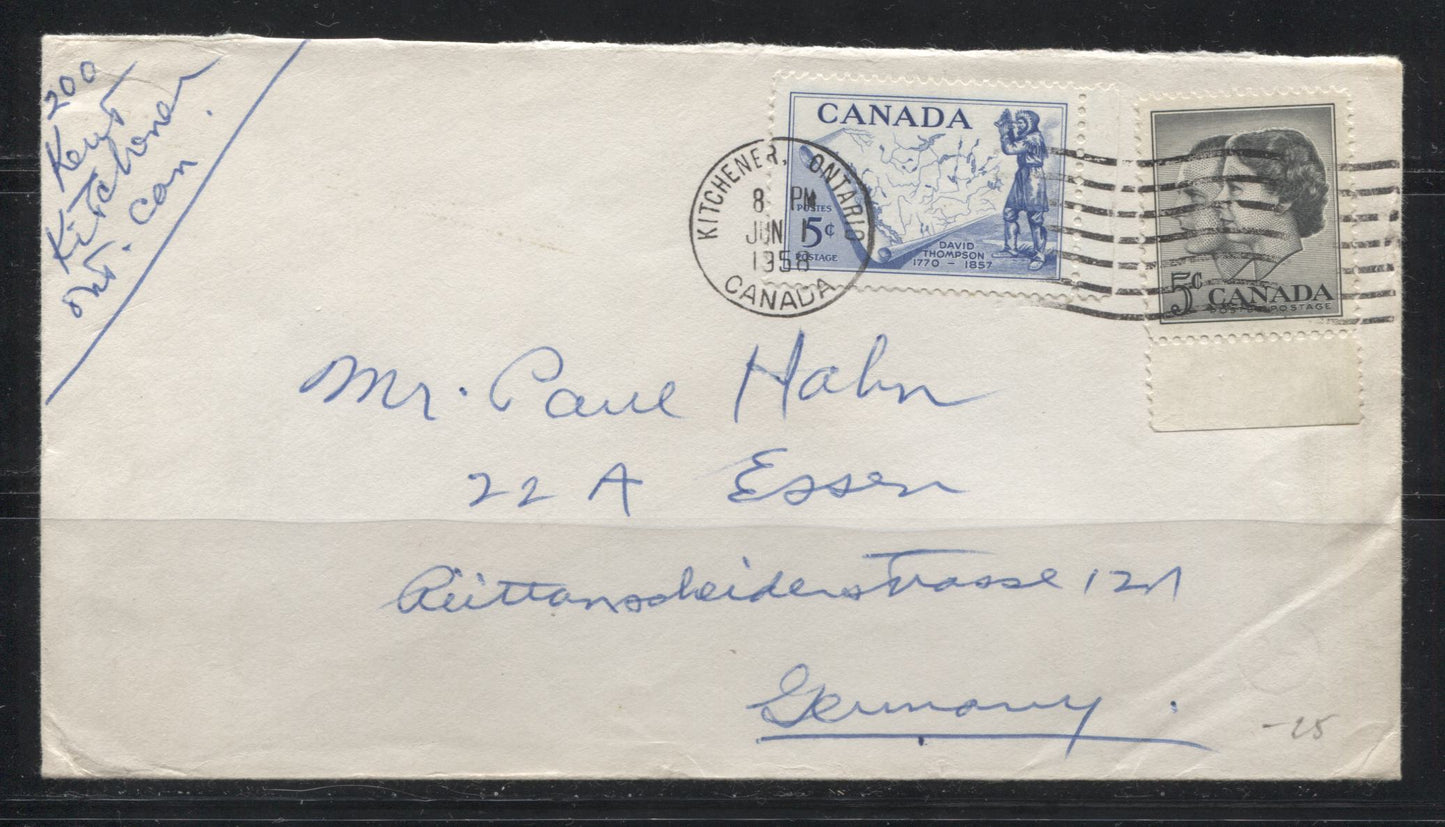 200
Kent
Kitchener
ont. can.
CANADA
POSTES
5¢
POSTAGE
DAVID
THOMPSON
1770 – 1857
KITCHENER, ONTARIO
8 PM
JUN 1
1958
CANADA
5¢ CANADA
POSTES POSTAGE
Mr. Paul Hahn
22 A Essen
Rüttanscheiderstrasse 121
Germany.
-25